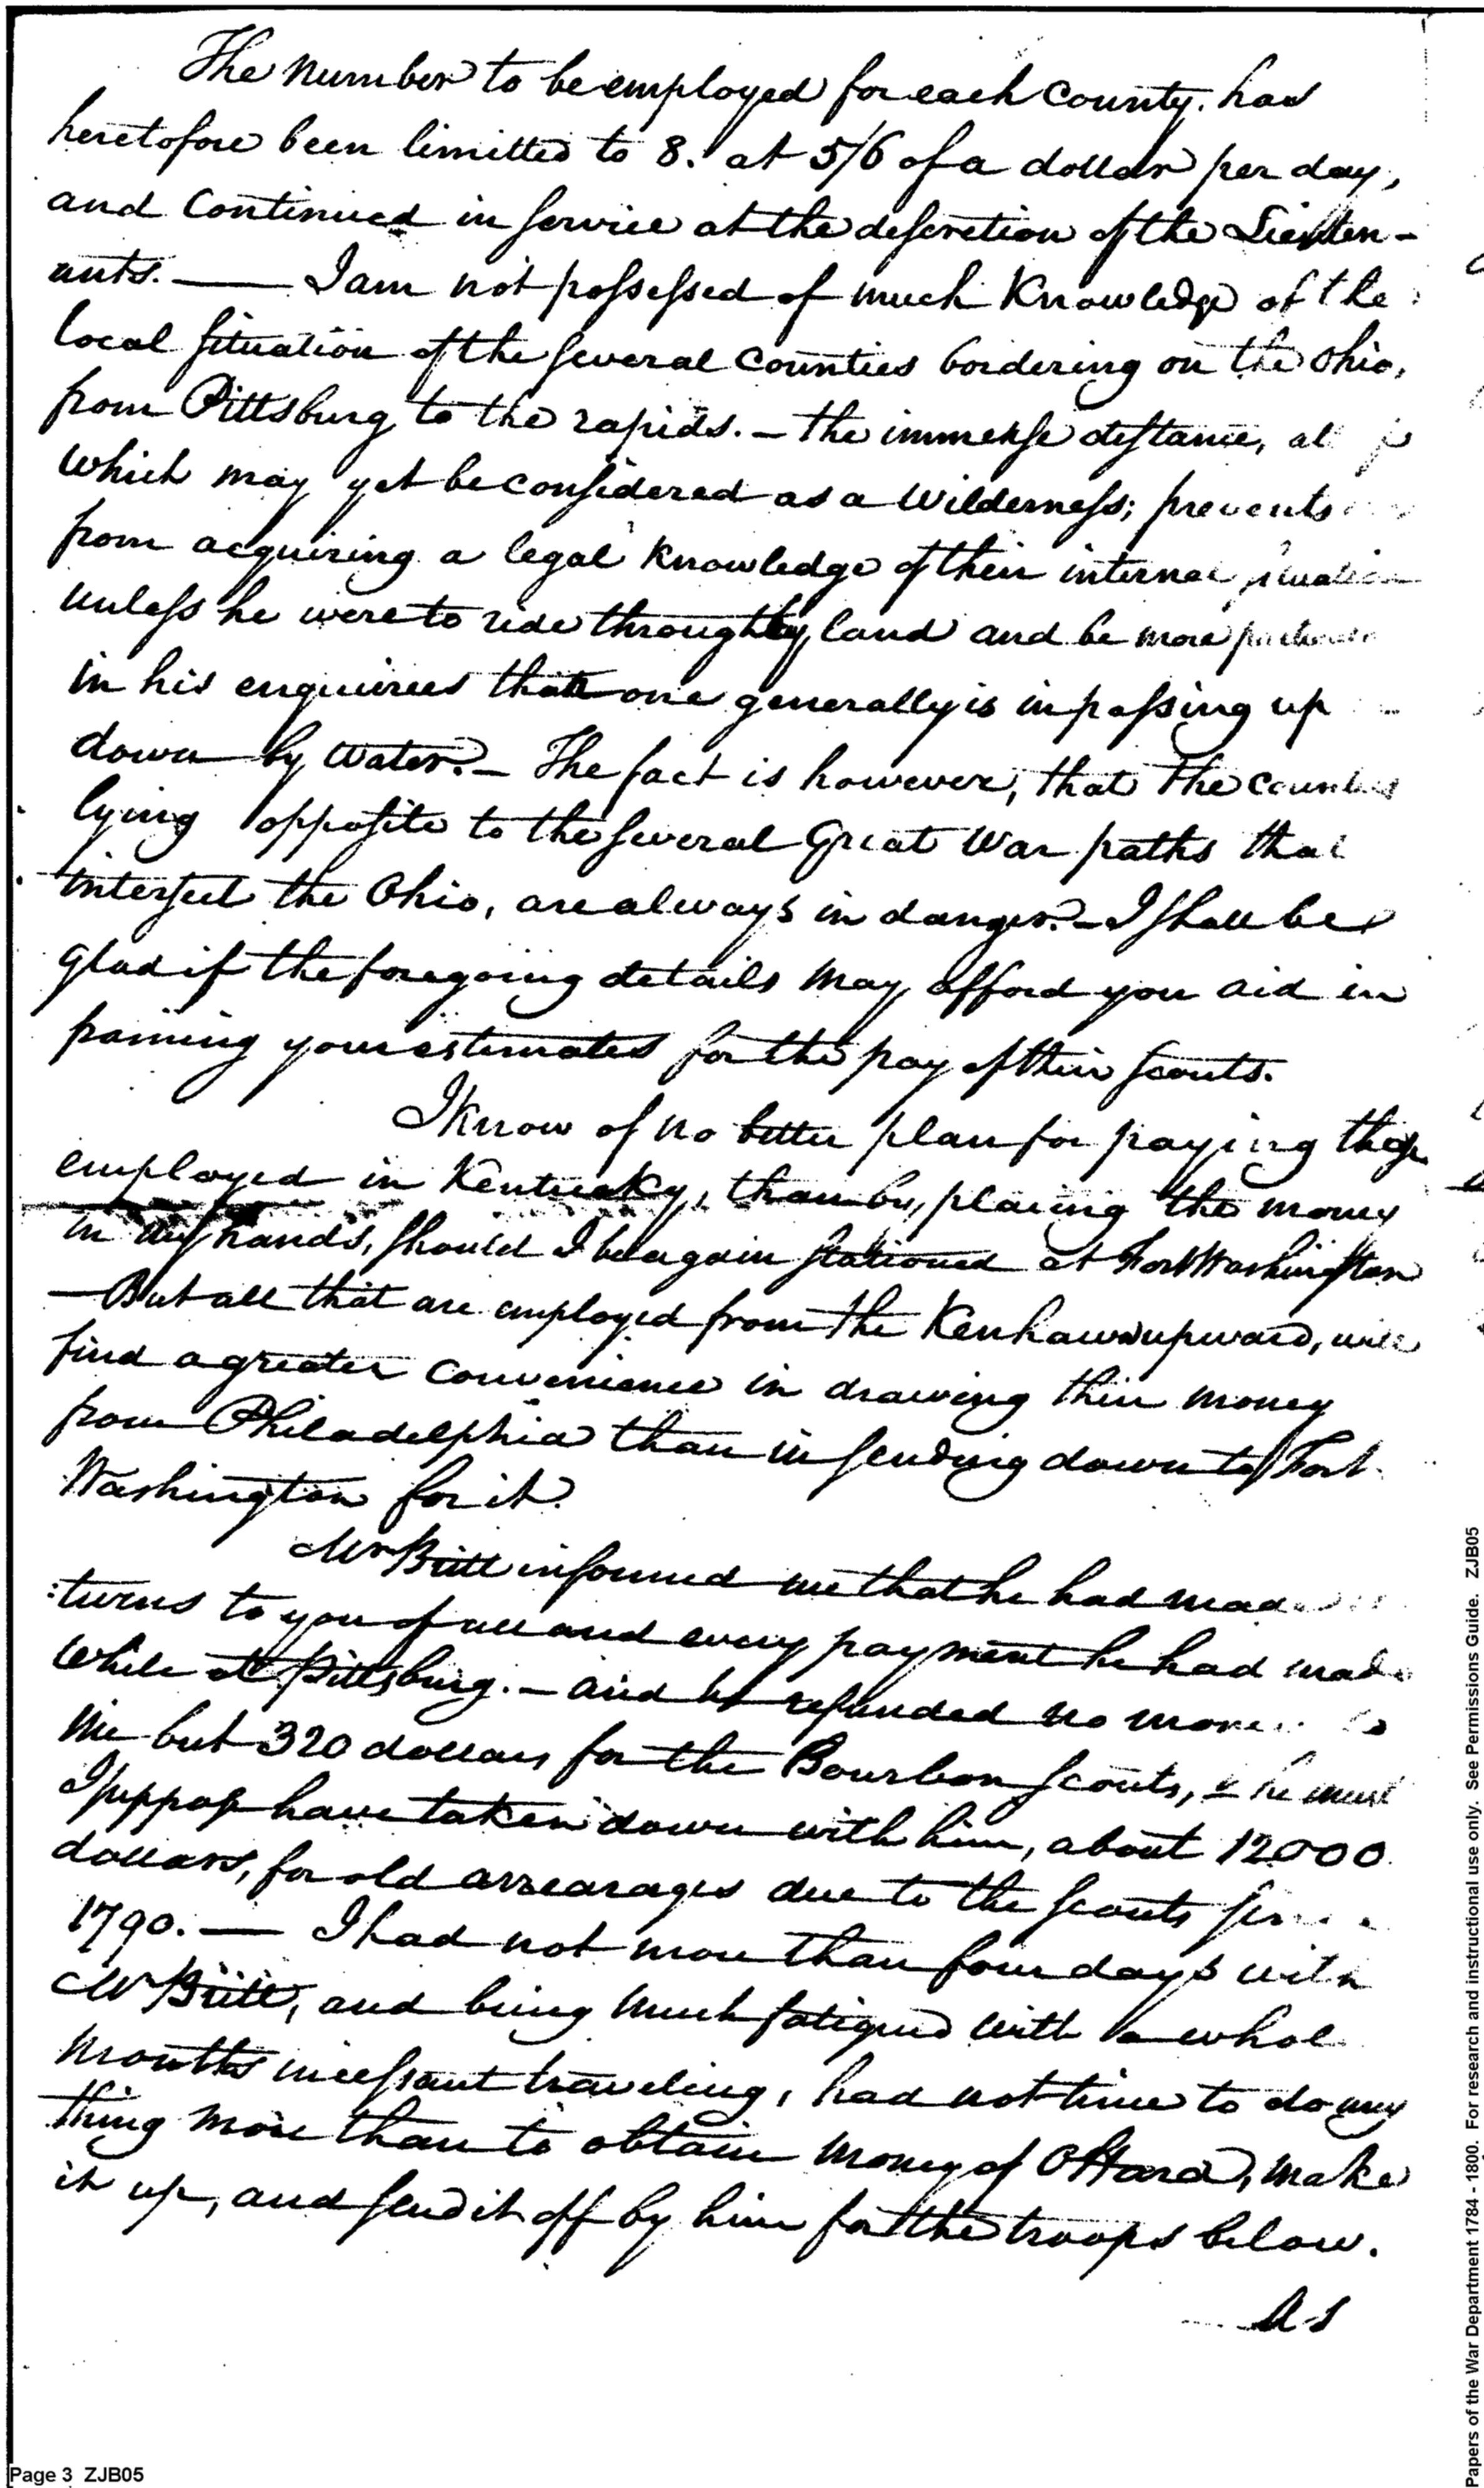 The number to be employed for each County. has
heretofore been limitted to 8. at 5/6 of a dollar per day,
and continued in service at the descretion of the Lieuten-
ants. — I am not possessed of much Knowledge of the
local situation of the several Counties bordering on the Ohio,
from Pittsburg to the rapids. — the immense distance, all
which may yet be considered as a Wilderness; prevents
from acquiring a legal knowledge of their internal situation
unless he were to ride through by land and be more particular
in his enquiries than one generally is in passing up
down by water. — The fact is however, that the counties
lying opposite to the several Great War paths that
intersect the Ohio, are always in danger. — I shall be
glad if the foregoing details may afford you aid in
framing your estimates for the pay of their scouts.
I know of no better plan for paying those
employed in Kentucky, than by placing the money
in my hands, should I be again stationed at Fort Washington
— But all that are employed from the Kenhawa upward, will
find a greater convenience in drawing their money
from Philadelphia than in sending down to Fort
Washington for it.
Mr Britt informed me that he had made
:turns to you of all and every payment he had made
while at Pittsburg. — and he refunded no money to
me but 320 dollars for the Bourbon scouts, & he must
I suppose have taken down with him, about 12000
dollars, for old arrearages due to the scouts since
1790. — I had not more than four days with
Mr Britt, and being much fatigued with a whole
months incessant traveling, had not time to do any
thing more than to obtain money of OHara, make
it up, and send it off by him for the troops below.
As
Page 3 ZJB05
Papers of the War Department 1784 - 1800. For research and instructional use only. See Permissions Guide. ZJB05